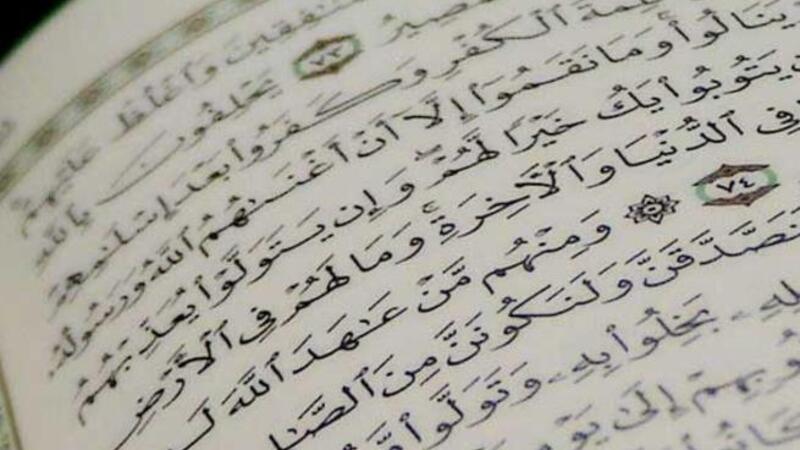 وَٱغْلُظْ عَلَيْهِمْ
٧٣ يَحْلِفُونَ بِٱللَّهِ
ٱلْكُفْرِ وَكَفَرُوا۟ بَعْدَ إِسْلَٰمِهِمْ
يَنَالُوا۟ وَمَا نَقَمُوٓا۟ إِلَّآ أَنْ أَغْنَىٰهُمُ ٱللَّهُ وَرَسُولُهُۥ
يَتُوبُوا۟ يَكُ خَيْرًا لَّهُمْ وَإِن يَتَوَلَّوْا۟ يُعَذِّبْهُمُ
فِى ٱلدُّنْيَا وَٱلْأَخِرَةِ وَمَا لَهُمْ فِى ٱلْأَرْضِ
٧٤ ۞ وَمِنْهُم مَّنْ عَٰهَدَ ٱللَّهَ
وَلَنَكُونَنَّ مِنَ
بَخِلُوا۟ بِهِۦ وَتَوَلَّوا۟
إِلَىٰ